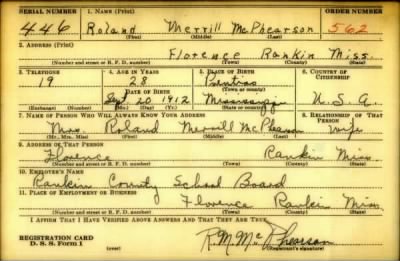 SERIAL NUMBER 1. NAME (Print) ORDER NUMBER
446 Roland Merrill McPhearson 562
(First) (Middle) (Last)
2. ADDRESS (Print)
Florence Rankin Miss.
(Number and street or R. F. D. number) (Town) (County) (State)
3. TELEPHONE 4. AGE IN YEARS 5. PLACE OF BIRTH 6. COUNTRY OF CITIZENSHIP
19 28
DATE OF BIRTH (Town or county)
Sept 20 1912 Mississippi U. S. A.
(Exchange) (Number) (Mo.) (Day) (Yr.) (State or country)
7. NAME OF PERSON WHO WILL ALWAYS KNOW YOUR ADDRESS 8. RELATIONSHIP OF THAT PERSON
Mrs. Roland Merrill McPhearson Wife
(Mr., Mrs., Miss) (First) (Middle) (Last)
9. ADDRESS OF THAT PERSON
Florence Rankin Miss.
(Number and street or R. F. D. number) (Town) (County) (State)
10. EMPLOYER'S NAME
Rankin County School Board
11. PLACE OF EMPLOYMENT OR BUSINESS
Florence Rankin Miss.
(Number and street or R. F. D. number) (Town) (County) (State)
I AFFIRM THAT I HAVE VERIFIED ABOVE ANSWERS AND THAT THEY ARE TRUE.
REGISTRATION CARD
D. S. S. Form 1 (over) R. M. McPhearson
(Registrant's signature)